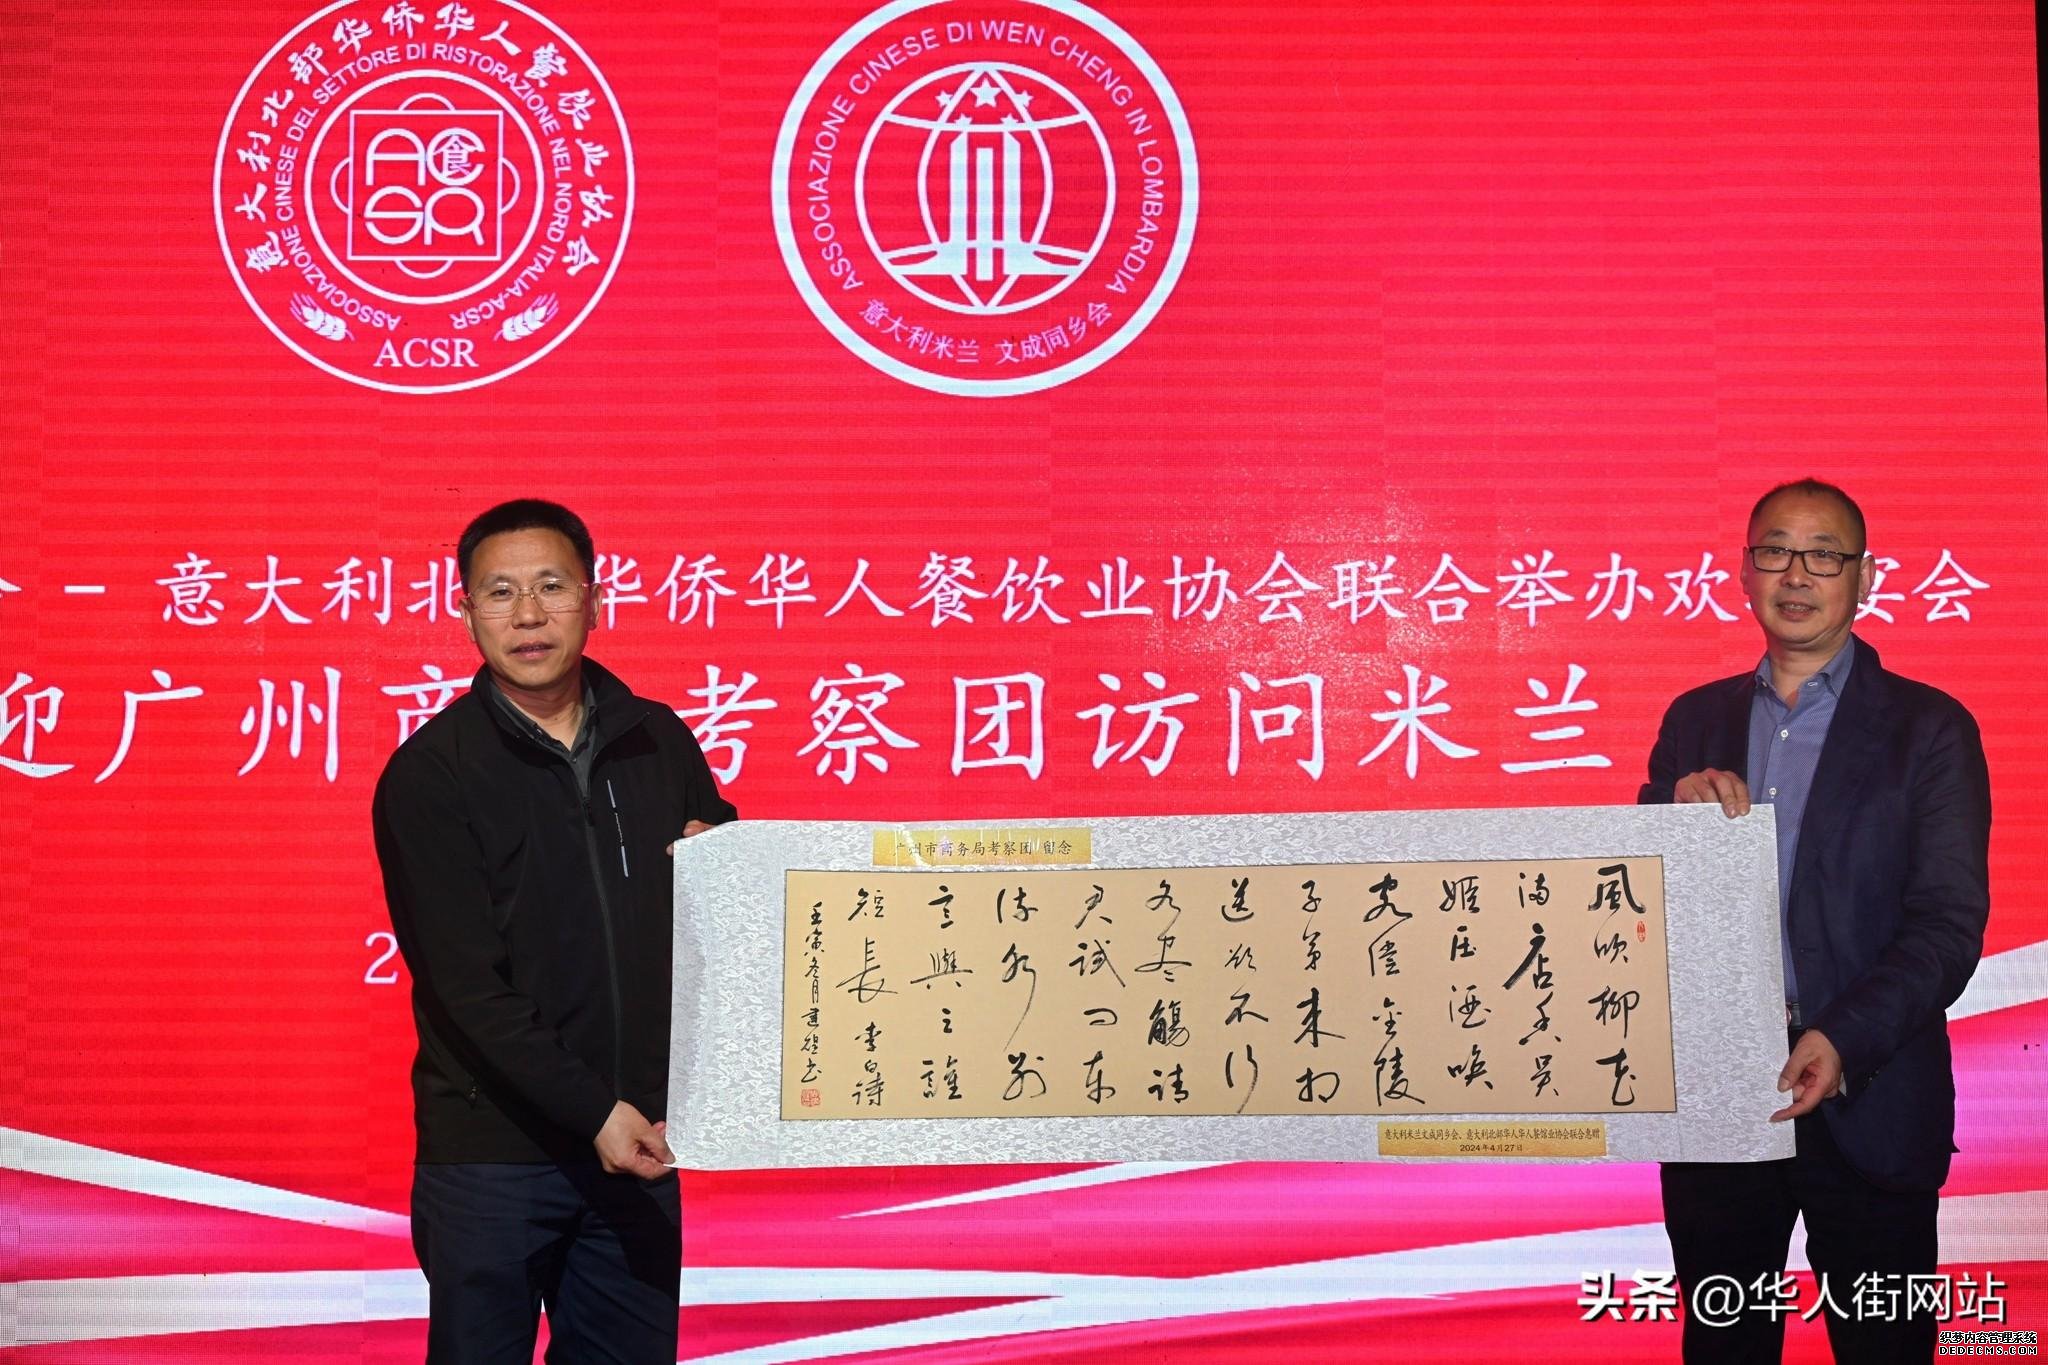 意大利北部华侨华人餐饮业协会
ASSOCIAZIONE CINESE DEL SETTORE DI RISTORAZIONE NEL NORD ITALIA-ACSR
AC食
SR
ACSR
ASSOCIAZIONE CINESE DI WEN CHENG IN LOMBARDIA
意大利米兰 文成同乡会
会 - 意大利北 华侨华人餐饮业协会联合举办欢 宴会
迎广州商 考察团访问米兰
2
广州市商务局考察团 留念
風吹柳花
满店香吴
姬压酒唤
客偿金陵
子弟来相
送欲不行
各尽觴请
君试问东
流水别
意與之誰
短長 李白诗
壬寅冬月建煌书
意大利米兰文成同乡会、意大利北部华人华人餐馆业协会联合惠赠
2024年4月27日
头条 @华人街网站
织梦内容管理系统
DEDECMS.COM